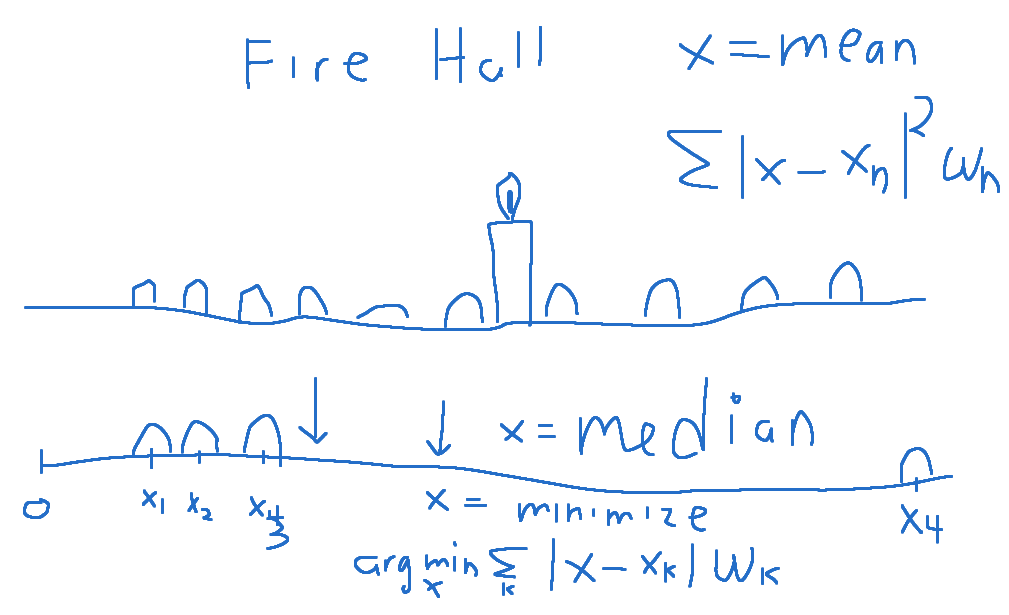 Fire Hall
x = mean
∑ |x - xₙ|² wₙ
x = median
0 x₁ x₂ x₃ x₄
x = minimize
arg minₓ ∑ₖ |x - xₖ| wₖ